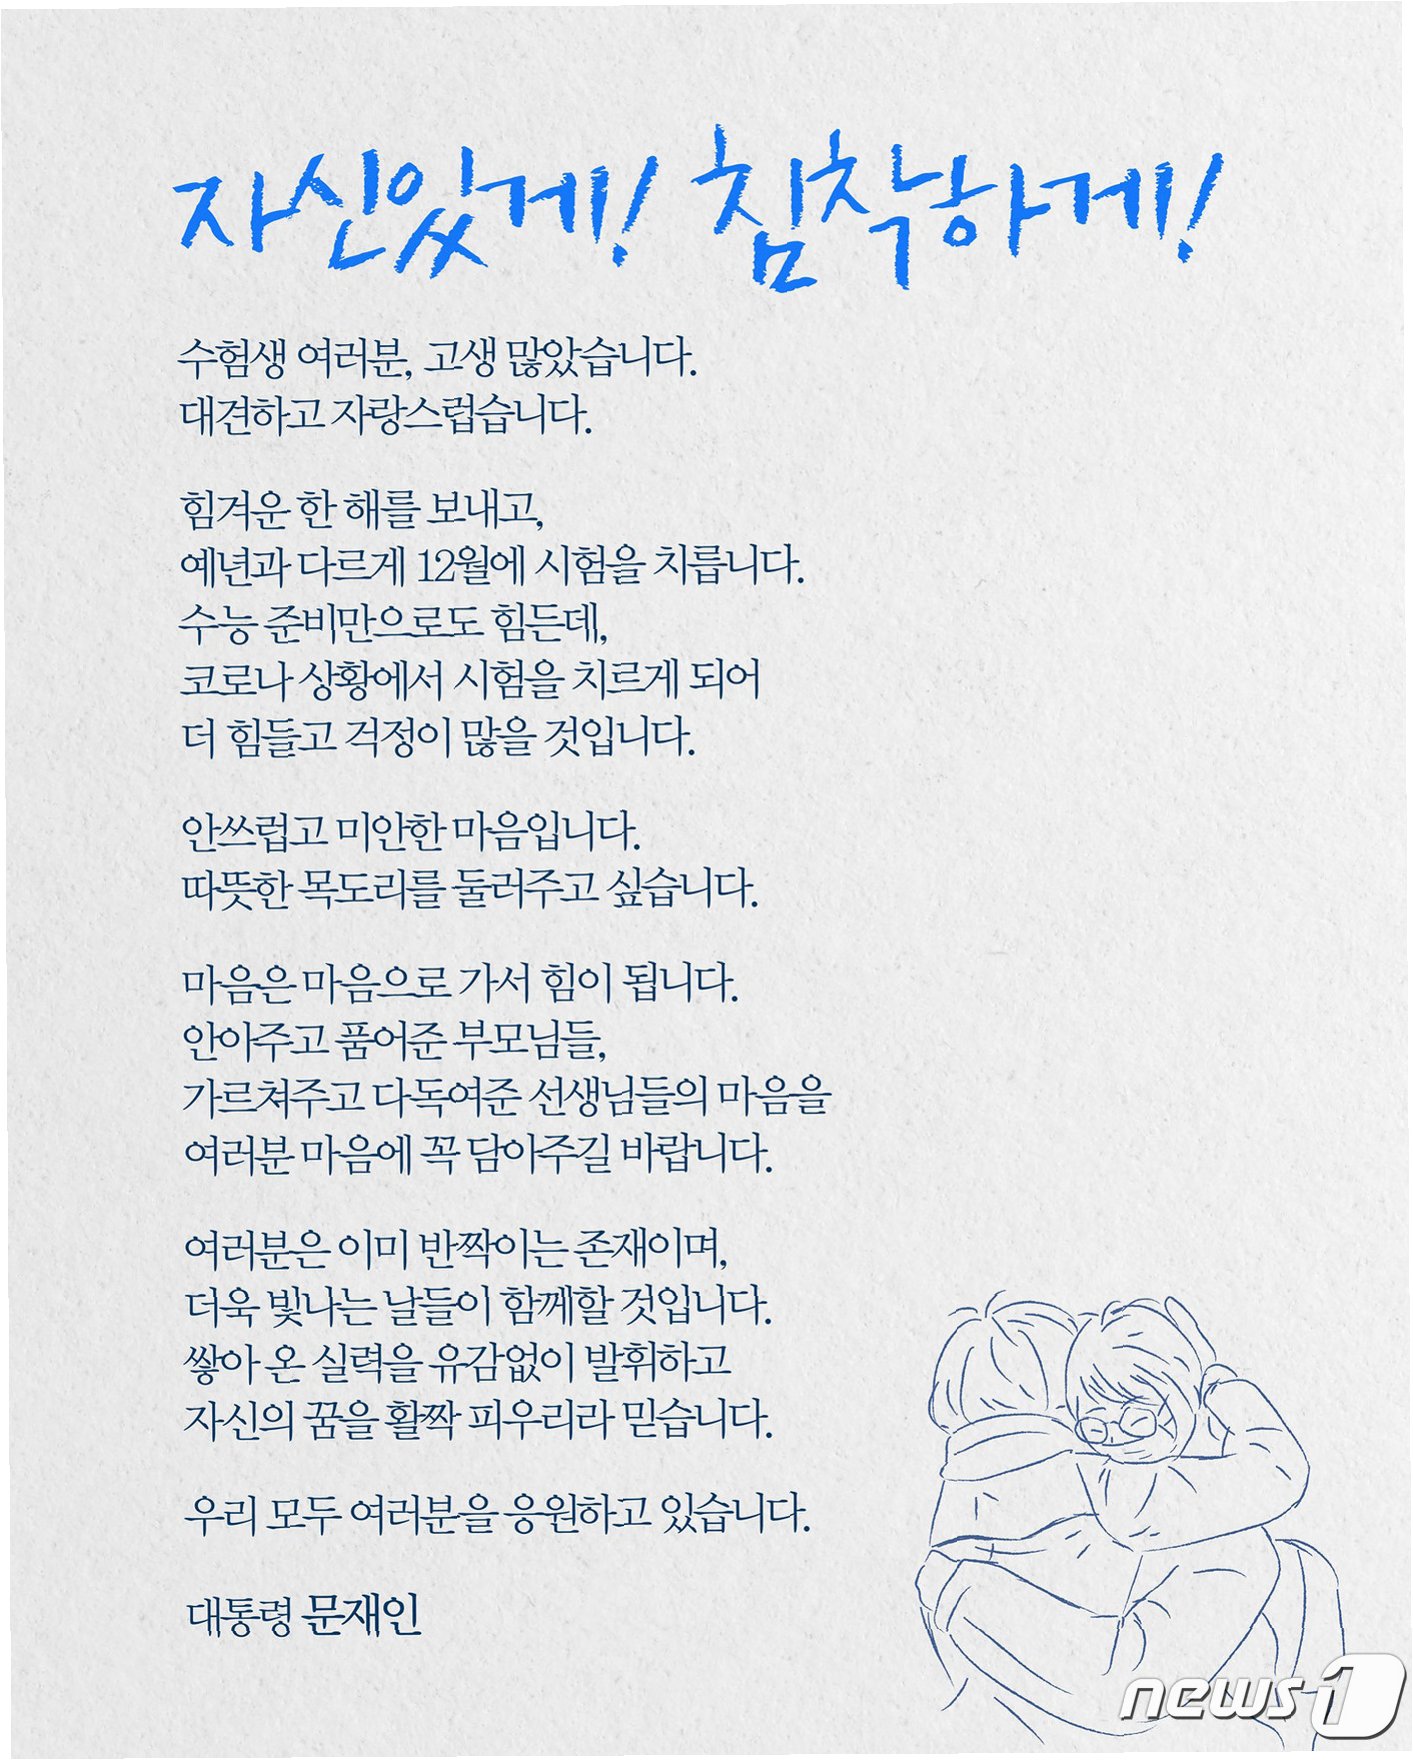 자신있게! 침착하게!
수험생 여러분, 고생 많았습니다.
대견하고 자랑스럽습니다.
힘겨운 한 해를 보내고,
예년과 다르게 12월에 시험을 치릅니다.
수능 준비만으로도 힘든데,
코로나 상황에서 시험을 치르게 되어
더 힘들고 걱정이 많을 것입니다.
안쓰럽고 미안한 마음입니다.
따뜻한 목도리를 둘러주고 싶습니다.
마음은 마음으로 가서 힘이 됩니다.
안아주고 품어준 부모님들,
가르쳐주고 다독여준 선생님들의 마음을
여러분 마음에 꼭 담아주길 바랍니다.
여러분은 이미 반짝이는 존재이며,
더욱 빛나는 날들이 함께할 것입니다.
쌓아 온 실력을 유감없이 발휘하고
자신의 꿈을 활짝 피우리라 믿습니다.
우리 모두 여러분을 응원하고 있습니다.
대통령 문재인
news1